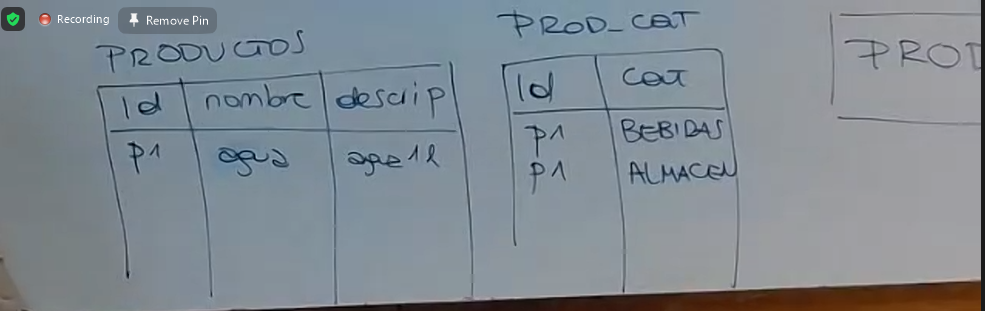 Recording
Remove Pin
PRODUCTOS
Id nombre descrip
p1 agua agua 1l
PROD_CAT
Id cat
p1 BEBIDAS
p1 ALMACEN
PROD